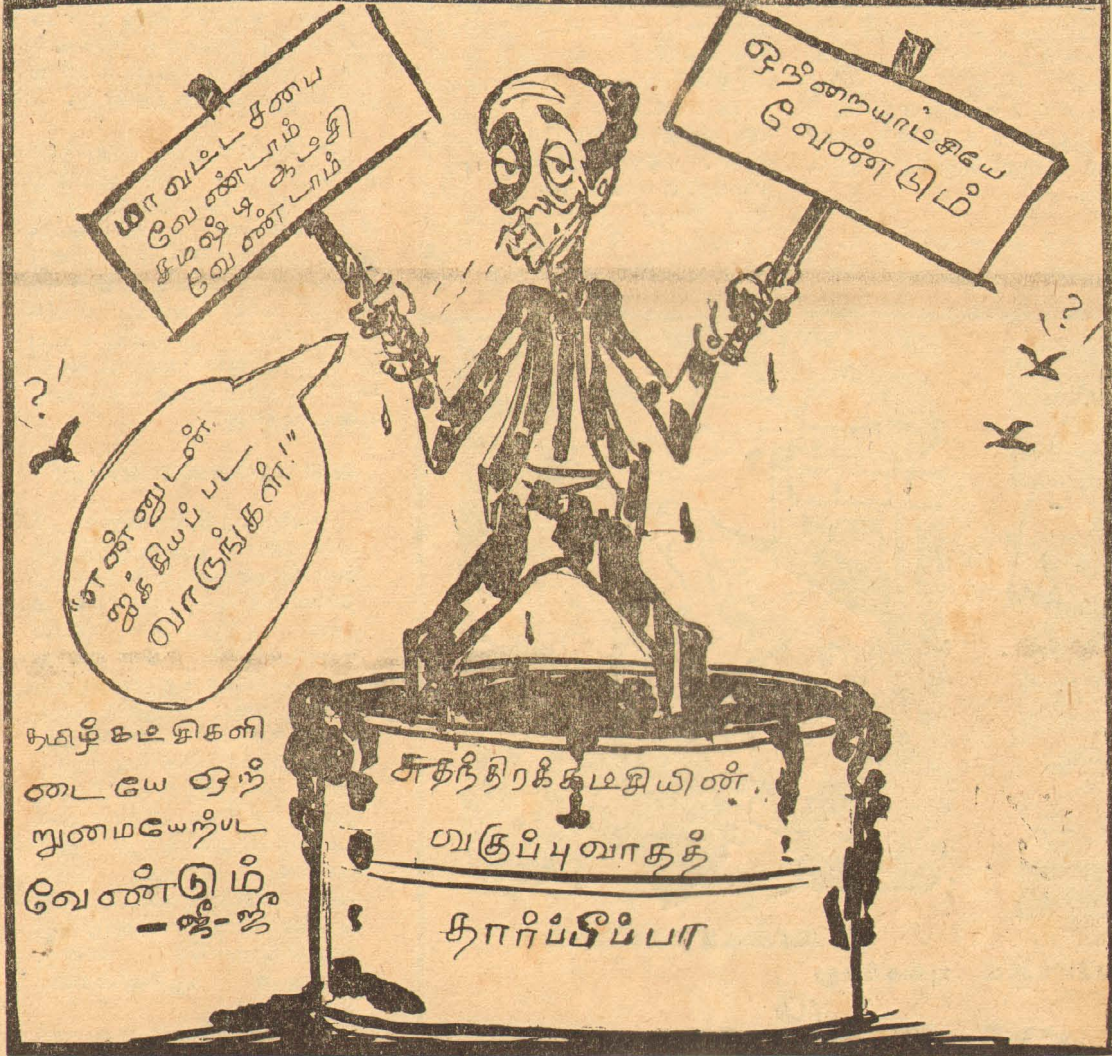 மாவட்ட சபை
வேண்டாம்
சமஷ்டி ஆட்சி
வேண்டாம்
ஒற்றையாட்சியே
வேண்டும்
"என்னுடன்
ஐக்கியப் பட
வாருங்கள்!"
தமிழ் கட்சிகளி
டையே ஒற்
றுமையேற்பட
வேண்டும்
- ஜீ - ஜீ
சுதந்திரக்கட்சியின்
வகுப்புவாதத்
தார்ப்பீப்பா